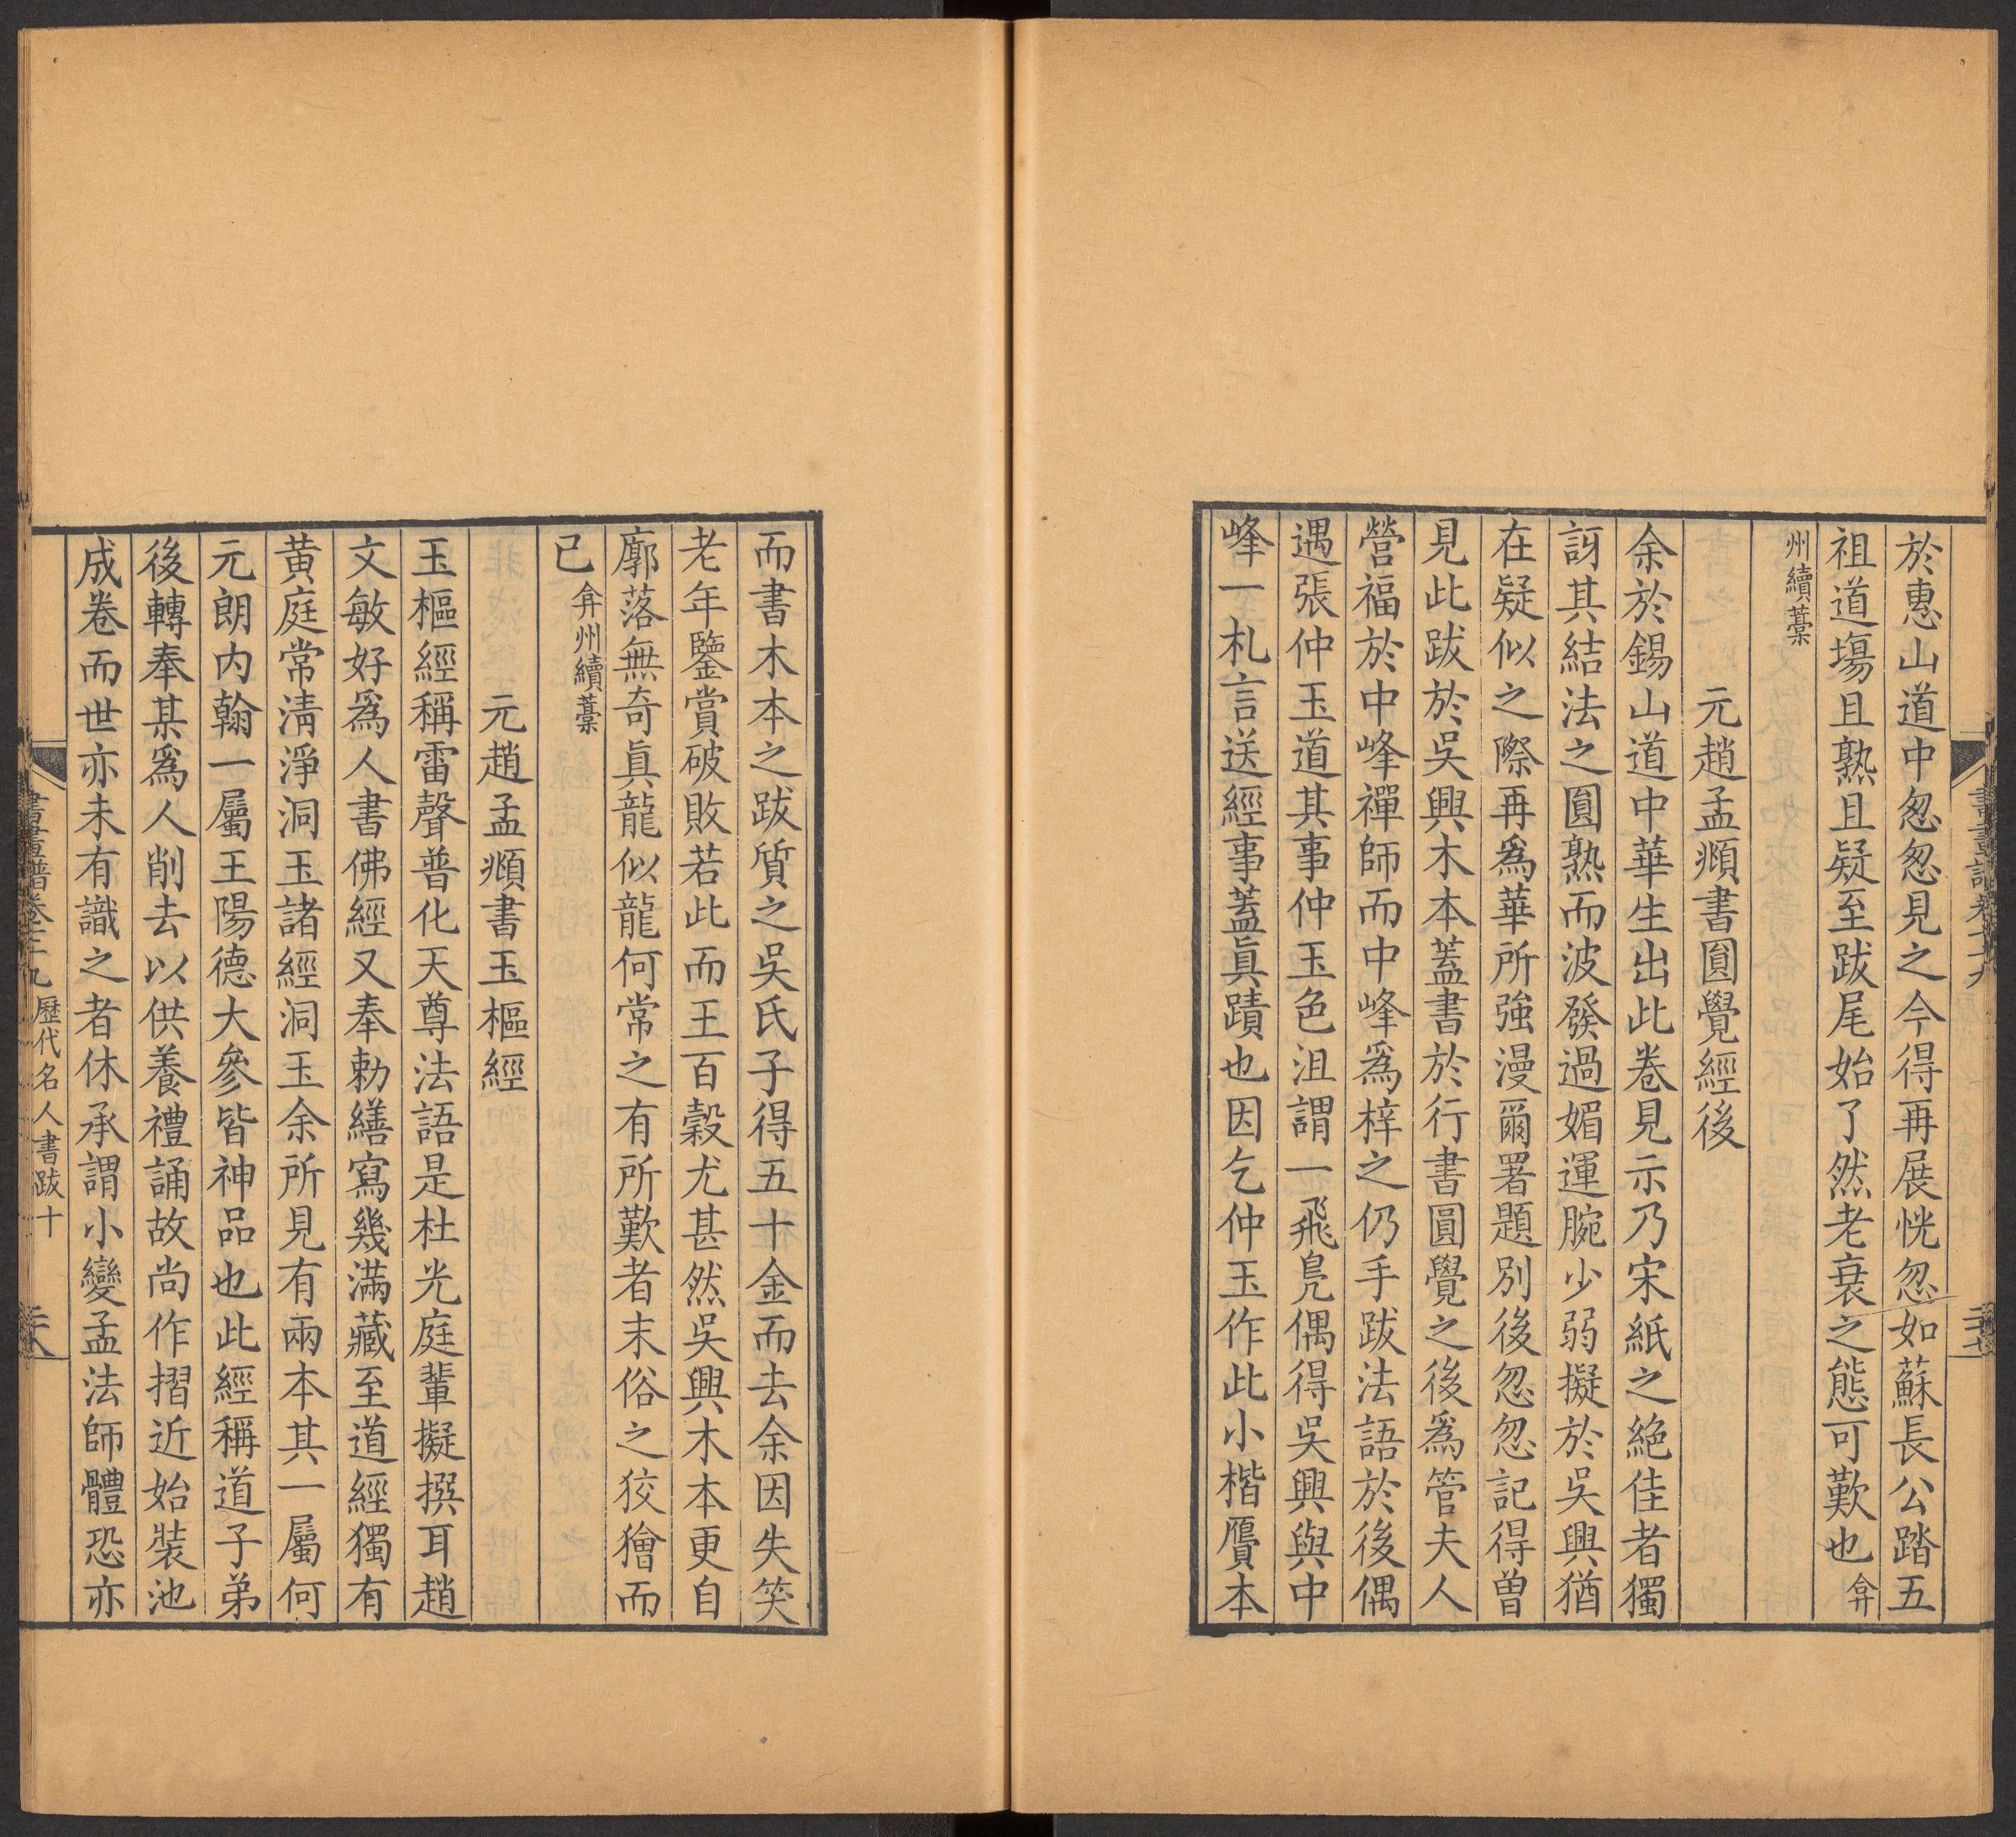 於惠山道中怱怱見之今得再展恍忽如蘇長公踏五
祖道場且熟且疑至跋尾始了然老衰之態可歎也弇
州續藁
元趙孟頫書圓覺經後
余於錫山道中華生出此卷見示乃宋紙之絶佳者獨
訝其結法之圓熟而波發過媚運腕少弱擬於吳興猶
在疑似之際再爲華所強漫爾署題別後忽忽記得曽
見此跋於吳興木本蓋書於行書圓覺之後爲管夫人
營福於中峰禪師而中峰爲梓之仍手跋法語於後偶
遇張仲玉道其事仲玉色沮謂一飛鳧偶得吳興與中
峰一札言送經事蓋眞蹟也因乞仲玉作此小楷贗本
而書木本之跋質之吳氏子得五十金而去余因失笑
老年鑒賞破敗若此而王百穀尤甚然吳興木本更自
廓落無奇眞龍似龍何常之有所歎者末俗之狡獪而
已弇州續藁
元趙孟頫書玉樞經
玉樞經稱雷聲普化天尊法語是杜光庭輩擬撰耳趙
文敏好爲人書佛經又奉勅繕寫幾滿藏至道經獨有
黄庭常清淨洞玉諸經洞玉余所見有兩本其一屬何
元朗内翰一屬王陽德大參皆神品也此經稱道子弟
後轉奉某爲人削去以供養禮誦故尚作摺近始裝池
成卷而世亦未有識之者休承謂小變孟法師體恐亦
歷代名人書跋十